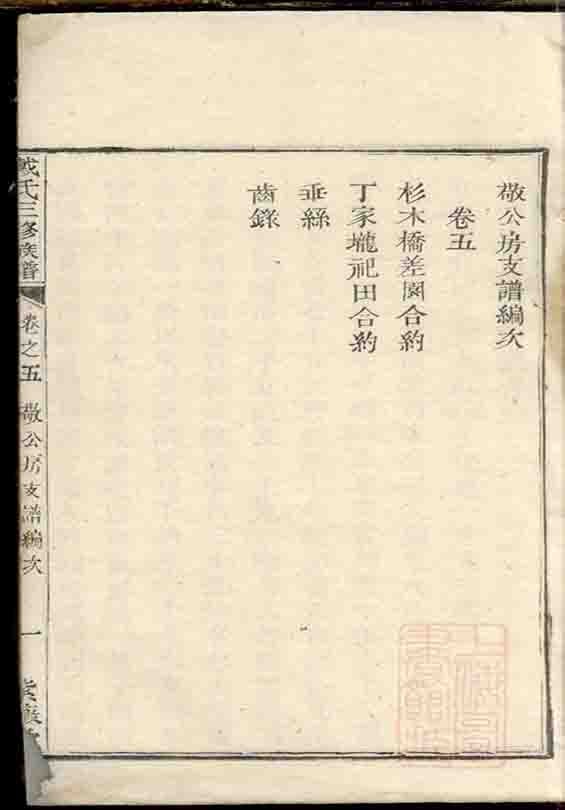 敬公房支譜編次
卷五
杉木橋差園合約
丁家壠祀田合約
垂絲
齒錄
戴氏三修族譜
卷之五
敬公房支譜編次
一